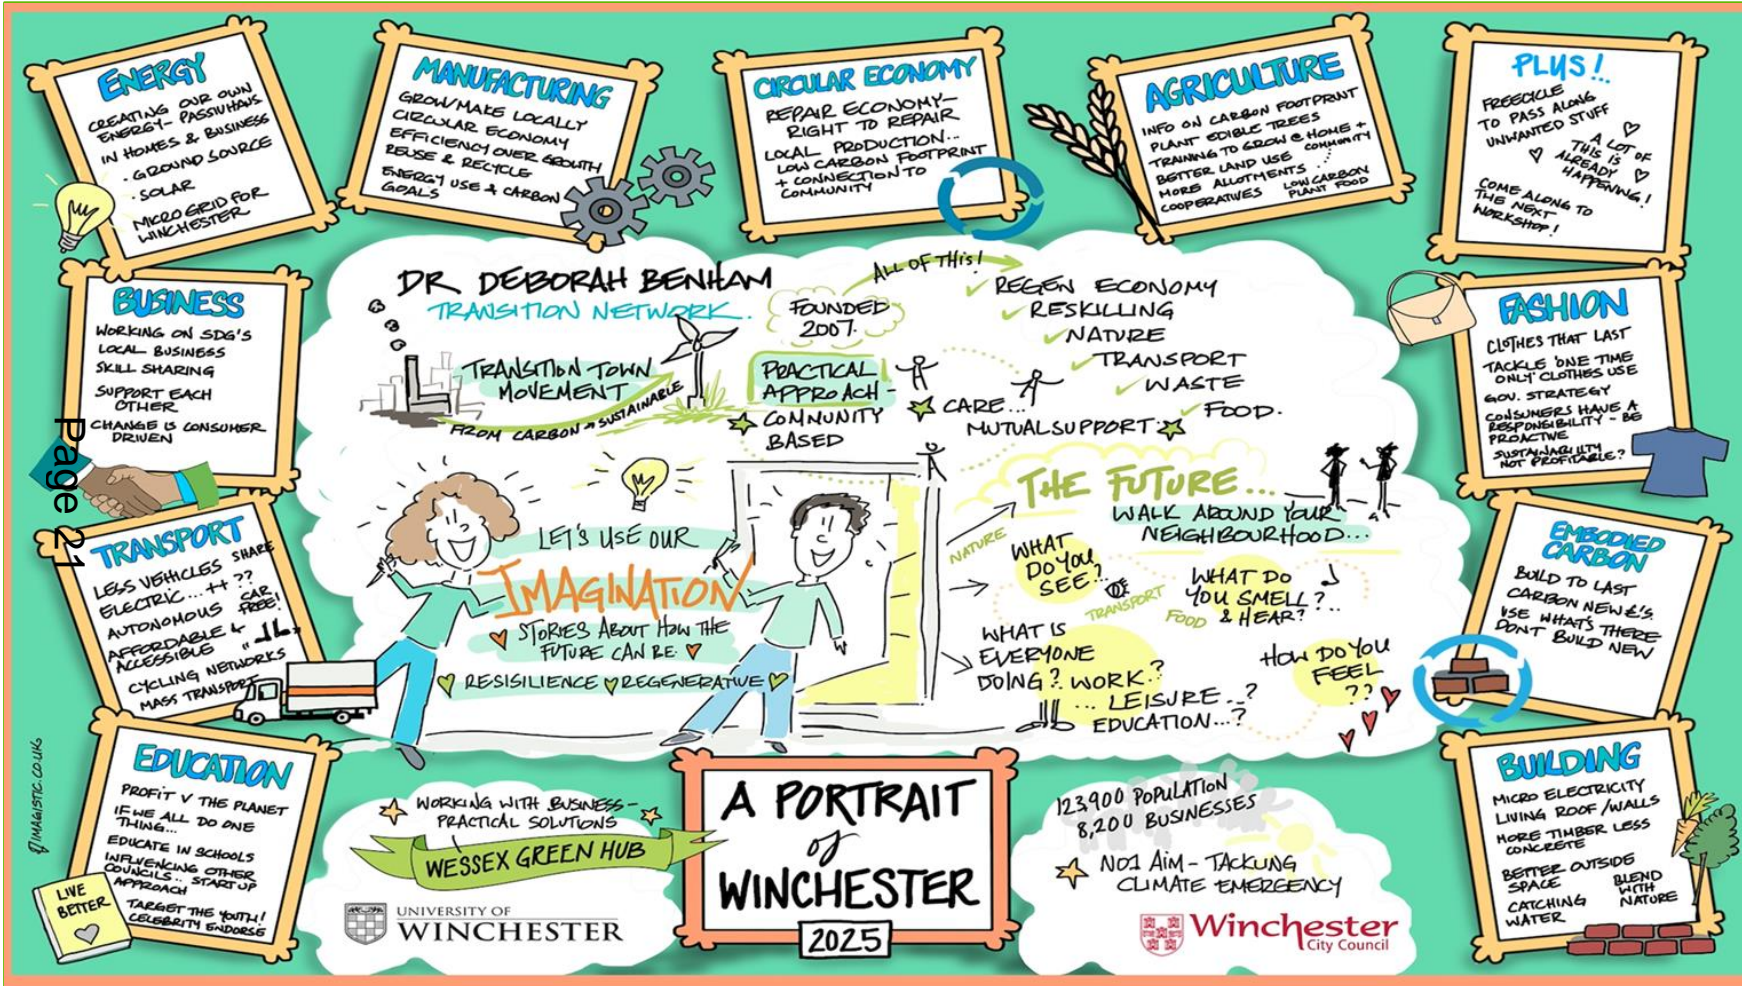 ENERGY
CREATING OUR OWN
ENERGY - PASSIUHAUS
IN HOMES & BUSINESS
· GROUND SOURCE
· SOLAR
MICRO GRID FOR
WINCHESTER
MANUFACTURING
GROW/MAKE LOCALLY
CIRCULAR ECONOMY
EFFICIENCY OVER GROWTH
REUSE & RECYCLE
ENERGY USE & CARBON
GOALS
CIRCULAR ECONOMY
REPAIR ECONOMY -
RIGHT TO REPAIR
LOCAL PRODUCTION...
LOW CARBON FOOTPRINT
+ CONNECTION TO
COMMUNITY
AGRICULTURE
INFO ON CARBON FOOTPRINT
PLANT EDIBLE TREES
TRAINING TO GROW @ HOME +
COMMUNITY
BETTER LAND USE
MORE ALLOTMENTS
COOPERATIVES
LOW CARBON
PLANT FOOD
PLUS!..
FREECYCLE
TO PASS ALONG
UNWANTED STUFF
A LOT OF
THIS IS
ALREADY
HAPPENING!
COME ALONG TO
THE NEXT
WORKSHOP!
BUSINESS
WORKING ON SDG'S
LOCAL BUSINESS
SKILL SHARING
SUPPORT EACH
OTHER
CHANGE IS CONSUMER
DRIVEN
Page 21
TRANSPORT
LESS VEHICLES SHARE
ELECTRIC... ++ ??
AUTONOMOUS CAR
FREE!
AFFORDABLE &
ACCESSIBLE "
CYCLING NETWORKS
MASS TRANSPORT
EDUCATION
PROFIT V THE PLANET
IF WE ALL DO ONE
THING...
EDUCATE IN SCHOOLS
INFLUENCING OTHER
COUNCILS.. START UP
APPROACH
TARGET THE YOUTH!
CELEBRITY ENDORSE
LIVE
BETTER
IMAGISTIC.CO.UK
DR DEBORAH BENHAM
TRANSITION NETWORK.
TRANSITION TOWN
MOVEMENT
FROM CARBON → SUSTAINABLE
FOUNDED
2007.
ALL OF THIS!
PRACTICAL
APPROACH -
COMMUNITY
BASED
REGEN ECONOMY
RESKILLING
NATURE
TRANSPORT
WASTE
FOOD.
CARE...
MUTUAL SUPPORT
LET'S USE OUR
IMAGINATION
STORIES ABOUT HOW THE
FUTURE CAN BE
RESISILIENCE
REGENERATIVE
THE FUTURE...
WALK AROUND YOUR
NEIGHBOURHOOD...
NATURE
WHAT
DO YOU
SEE?
TRANSPORT
FOOD
WHAT DO
YOU SMELL?
& HEAR?
WHAT IS
EVERYONE
DOING? WORK.?
... LEISURE..?
EDUCATION...?
HOW DO YOU
FEEL
??
FASHION
CLOTHES THAT LAST
TACKLE 'ONE TIME
ONLY' CLOTHES USE
GOV. STRATEGY
CONSUMERS HAVE A
RESPONSIBILITY - BE
PROACTIVE
SUSTAINABILITY
NOT PROFITABLE?
EMBODIED
CARBON
BUILD TO LAST
CARBON NEW £'S.
USE WHAT'S THERE
DON'T BUILD NEW
BUILDING
MICRO ELECTRICITY
LIVING ROOF/WALLS
MORE TIMBER LESS
CONCRETE
BETTER OUTSIDE
SPACE
CATCHING
WATER
BLEND
WITH
NATURE
WORKING WITH BUSINESS -
PRACTICAL SOLUTIONS
WESSEX GREEN HUB
UNIVERSITY OF
WINCHESTER
A PORTRAIT
of
WINCHESTER
2025
123,900 POPULATION
8,200 BUSINESSES
NO1 AIM - TACKLING
CLIMATE EMERGENCY
Winchester
City Council